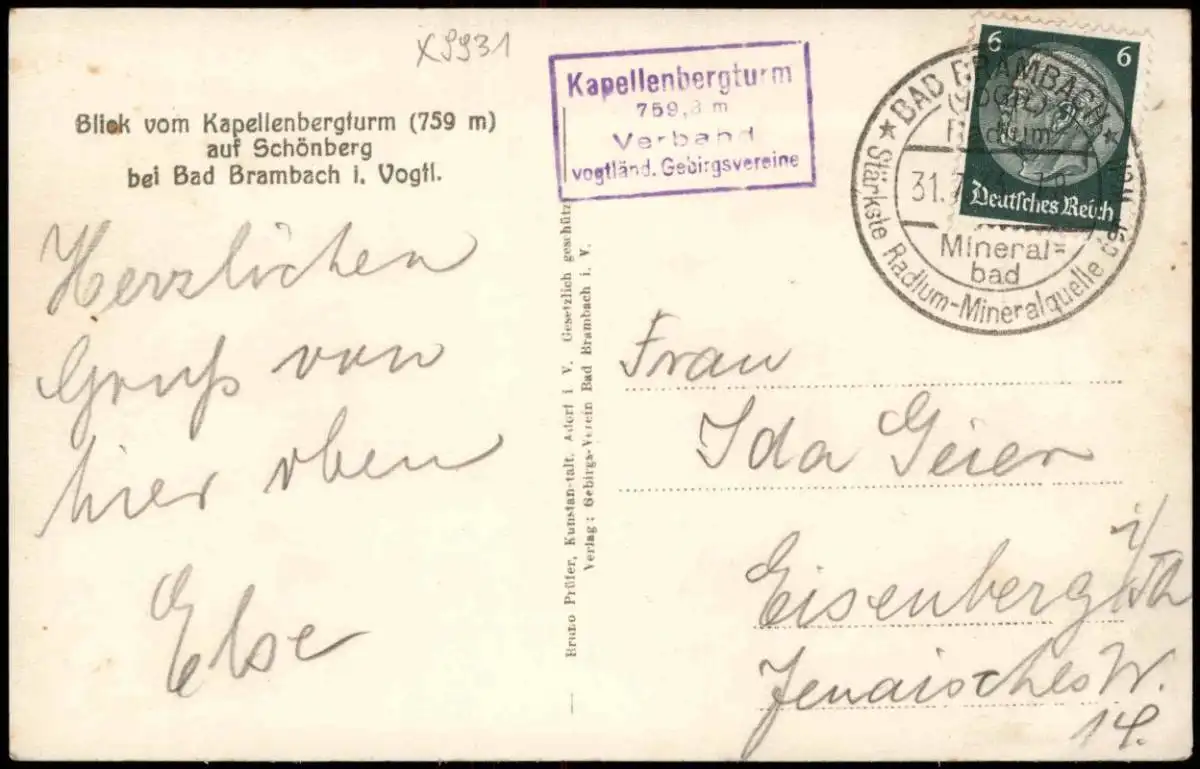 x9931
Blick vom Kapellenbergturm (759 m)
auf Schönberg
bei Bad Brambach i. Vogtl.
Herzlichen
Gruß von
hier oben
Else
Kapellenbergturm
759,3 m
Verband
vogtländ. Gebirgsvereine
Bruno Prüfer, Kunstanstalt, Adorf i V. Gesetzlich geschütz
Verlag: Gebirgs-Verein Bad Brambach i. V.
6 6
Deutsches Reich
★ BAD BRAMBACH ★
(VOGTL)
Radium-
31.7.
Mineral=
bad
Stärkste Radium-Mineralquelle der
Frau
Ida Geier
Eisenberg i/Th
Jenaisches W.
14.